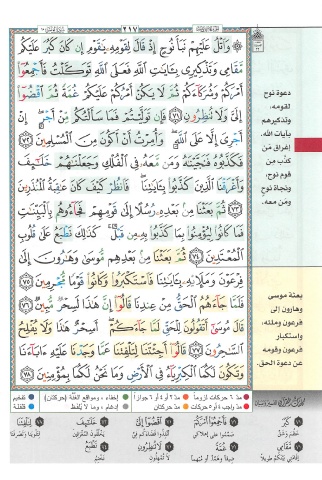 ٢١٧
۞ وَٱتۡلُ عَلَيۡهِمۡ نَبَأَ نُوحٍ إِذۡ قَالَ لِقَوۡمِهِۦ يَٰقَوۡمِ إِن كَانَ كَبُرَ عَلَيۡكُم
مَّقَامِي وَتَذۡكِيرِي بِـَٔايَٰتِ ٱللَّهِ فَعَلَى ٱللَّهِ تَوَكَّلۡتُ فَأَجۡمِعُوٓاْ
أَمۡرَكُمۡ وَشُرَكَآءَكُمۡ ثُمَّ لَا يَكُنۡ أَمۡرُكُمۡ عَلَيۡكُمۡ غُمَّةٗ ثُمَّ ٱقۡضُوٓاْ
إِلَيَّ وَلَا تُنظِرُونِ ٧١ فَإِن تَوَلَّيۡتُمۡ فَمَا سَأَلۡتُكُم مِّنۡ أَجۡرٍۖ إِنۡ
أَجۡرِيَ إِلَّا عَلَى ٱللَّهِۖ وَأُمِرۡتُ أَنۡ أَكُونَ مِنَ ٱلۡمُسۡلِمِينَ ٧٢
فَكَذَّبُوهُ فَنَجَّيۡنَٰهُ وَمَن مَّعَهُۥ فِي ٱلۡفُلۡكِ وَجَعَلۡنَٰهُمۡ خَلَٰٓئِفَ
وَأَغۡرَقۡنَا ٱلَّذِينَ كَذَّبُواْ بِـَٔايَٰتِنَاۖ فَٱنظُرۡ كَيۡفَ كَانَ عَٰقِبَةُ ٱلۡمُنذَرِينَ
٧٣ ثُمَّ بَعَثۡنَا مِنۢ بَعۡدِهِۦ رُسُلًا إِلَىٰ قَوۡمِهِمۡ فَجَآءُوهُم بِٱلۡبَيِّنَٰتِ
فَمَا كَانُواْ لِيُؤۡمِنُواْ بِمَا كَذَّبُواْ بِهِۦ مِن قَبۡلُۚ كَذَٰلِكَ نَطۡبَعُ عَلَىٰ قُلُوبِ
ٱلۡمُعۡتَدِينَ ٧٤ ثُمَّ بَعَثۡنَا مِنۢ بَعۡدِهِم مُّوسَىٰ وَهَٰرُونَ إِلَىٰ
فِرۡعَوۡنَ وَمَلَإِيْهِۦ بِـَٔايَٰتِنَا فَٱسۡتَكۡبَرُواْ وَكَانُواْ قَوۡمٗا مُّجۡرِمِينَ ٧٥
فَلَمَّا جَآءَهُمُ ٱلۡحَقُّ مِنۡ عِندِنَا قَالُوٓاْ إِنَّ هَٰذَا لَسِحۡرٞ مُّبِينٞ ٧٦
قَالَ مُوسَىٰٓ أَتَقُولُونَ لِلۡحَقِّ لَمَّا جَآءَكُمۡۖ أَسِحۡرٌ هَٰذَا وَلَا يُفۡلِحُ
ٱلسَّٰحِرُونَ ٧٧ قَالُوٓاْ أَجِئۡتَنَا لِتَلۡفِتَنَا عَمَّا وَجَدۡنَا عَلَيۡهِ ءَابَآءَنَا
وَتَكُونَ لَكُمَا ٱلۡكِبۡرِيَآءُ فِي ٱلۡأَرۡضِ وَمَا نَحۡنُ لَكُمَا بِمُؤۡمِنِينَ ٧٨
دعوة نوح
لقومه،
وتذكيرهم
بآيات الله.
إغراق مَن
كذّب من
قوم نوح،
ونجاة نوح
ومَن معه.
بعثة موسى
وهارون إلى
فرعون وملئه،
واستكبار
فرعون وقومه
عن دعوة الحق.
مدّ ٦ حركات لزوماً مدّ ٢ أو ٤ أو ٦ جوازاً إخفاء، ومواقع الغنّة (حركتان) تفخيم
مدّ واجب ٤ أو ٥ حركات مدّ حركتان إدغام، وما لا يُلفظ قلقلة